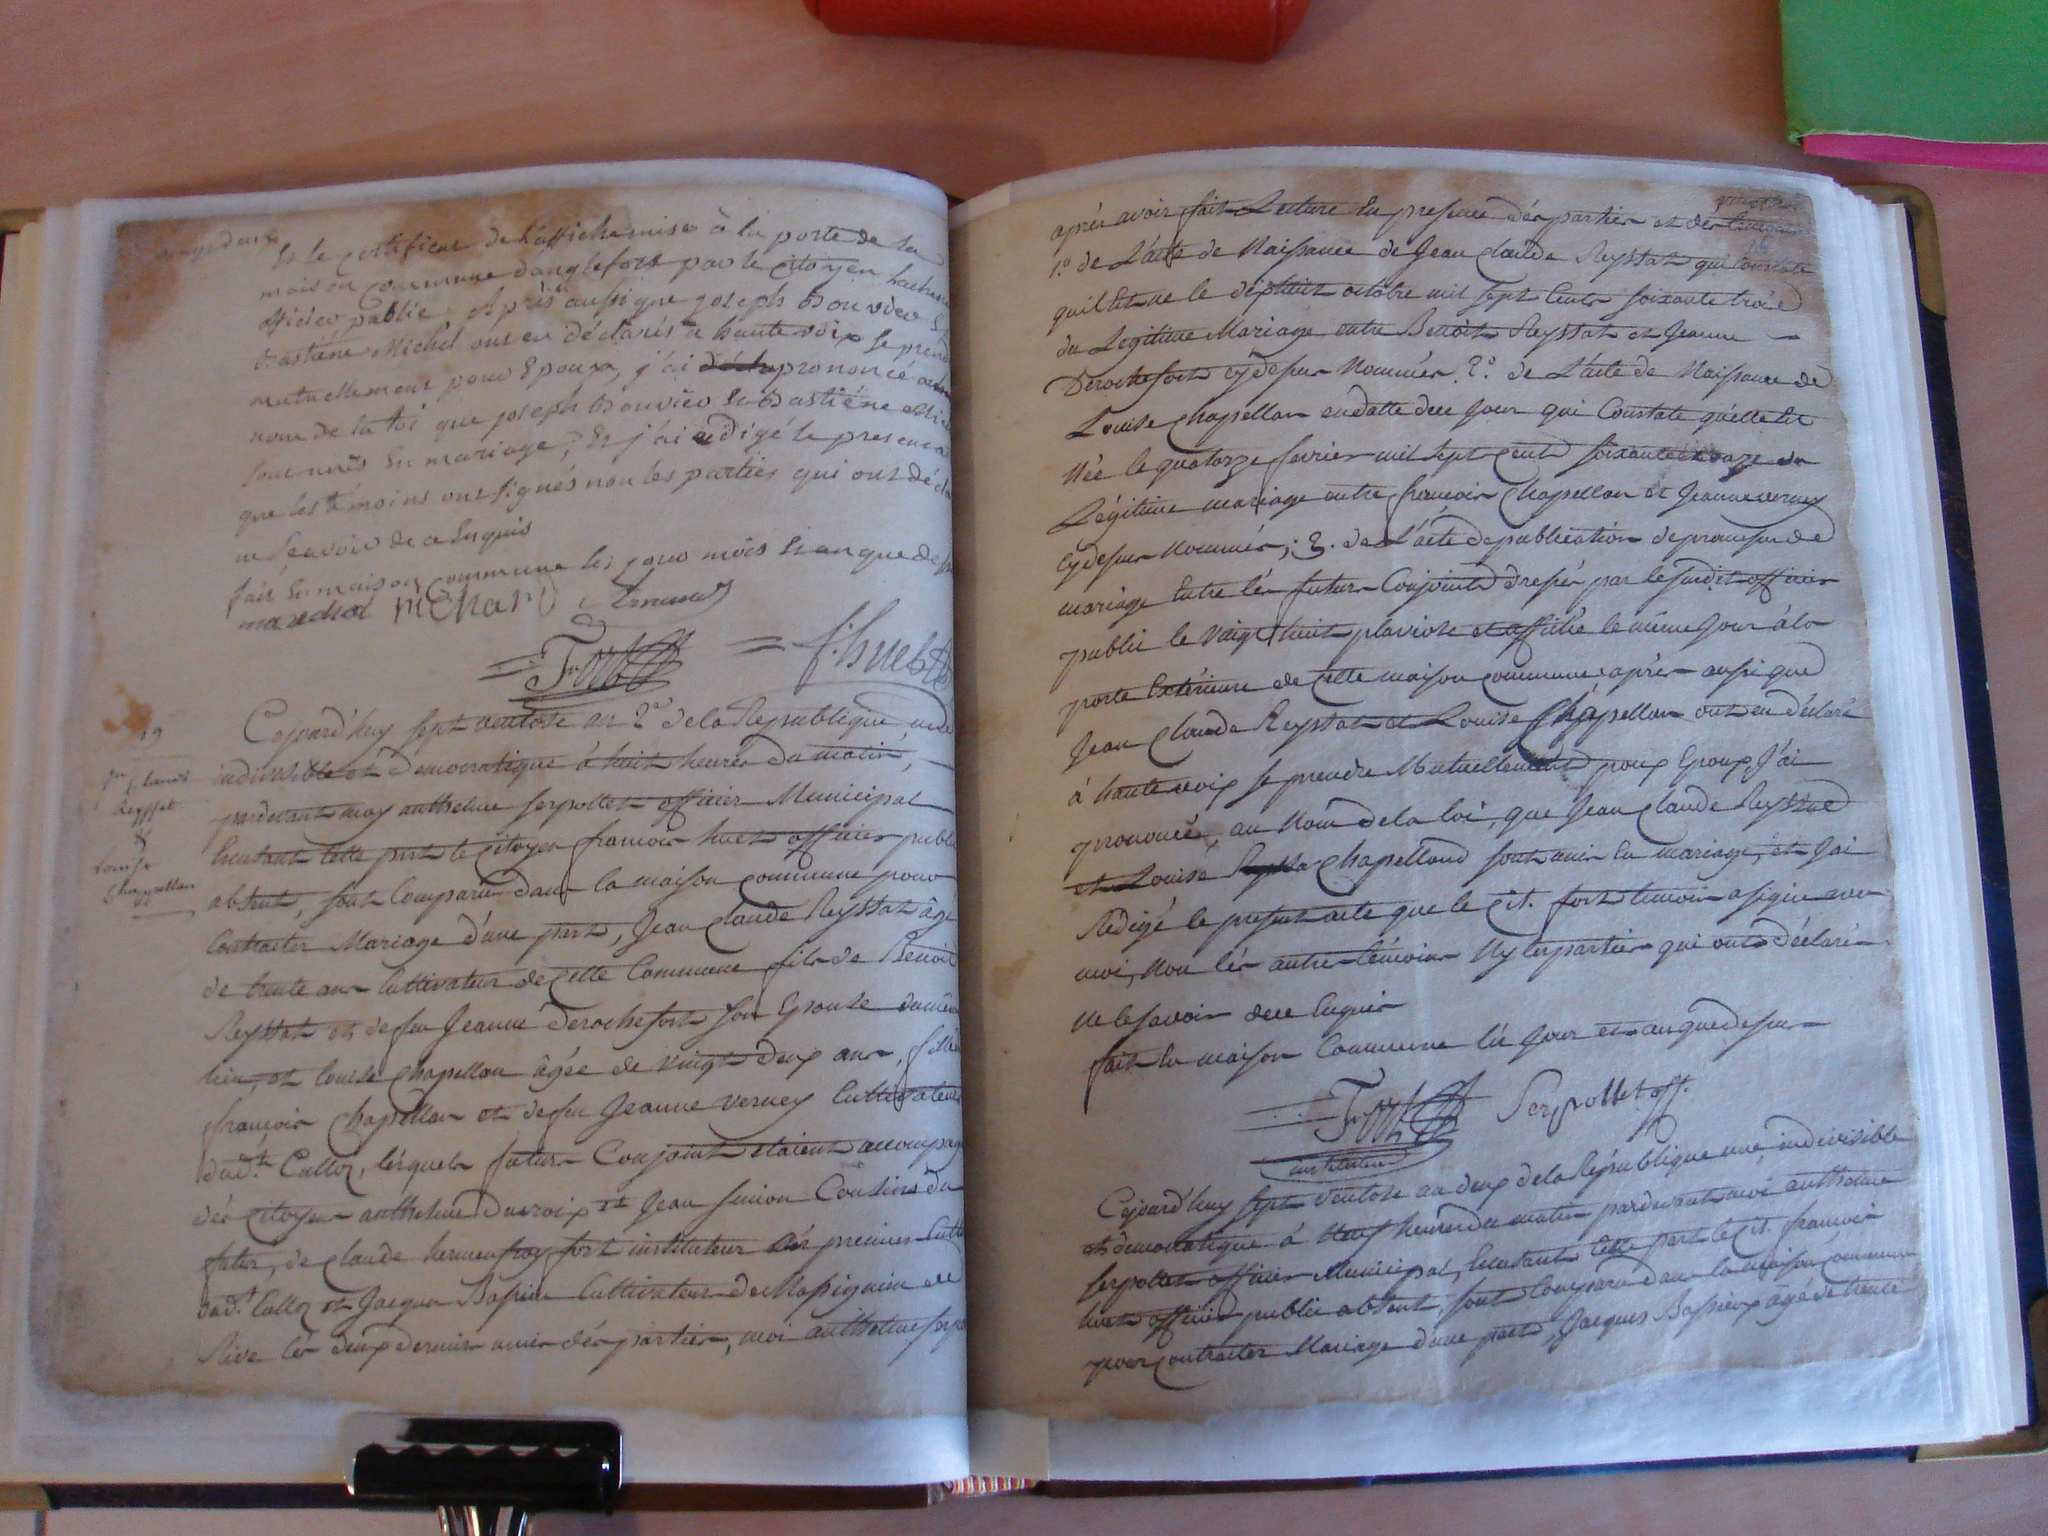 Et le certificat de l'affiche mise à la porte de la
maison commune danglefort par le citoyen
officier public. Après aussi que joseph Bouvier Et
Bastiéne Michel ont en déclarés à haute voix se prend
mutuellement pour Epoux, j'ai prononcé au
nom de la loi que joseph Bouvier Et Bastiéne Mic
sont unis En mariage, Et j'ai rédigé le present a
que les témoins ont signés non les parties qui ont décla
ne sçavoir de ce Enquis
fait En maison commune les jour mois Et an que de
maréchal michard
= Fort = f. huet
19
Jn Claude
Reyssat
&
Louise
Chappellan
Cejourd'huy sept ventose an 2e de la Republique, une
indivisible et démocratique à huit heures du matin,
pardevant moy anthelme serpollet officier Municipal
himstant cette part le Citoyen francois huet officier public
absent, sont Comparu dans la maison commune pour
Contracter Mariage d'une part, Jean Claude Reyssat âgé
de trente ans Cultivateur de Cette Commune fils de Benoit
Reyssat et defeu Jeanne Derochefort son Epouse du même
lieu, et louise Chapellan âgée de vingt deux ans, fille
francois Chapellan et defeu Jeanne verney Cultivateurs
dud.t Culloz, lesquels futurs Conjoints etaient accompag
dés Citoyens anthelme Ducroix et Jean simion Cousins du
futur, de Claude fort instituteur dés premiers Cult
dud.t Culloz et Jacques Bassieu Cultivateur de Massignieu de
Rive lés deux derniers amis dés parties, moi anthelme serpo
après avoir fait Lecture En presence dés parties et des temoins
1.o de L'acte de Naissance de Jean Claude Reyssat qui Constate
quil Est né le dixhuit octobre mil sept Cents soixante trois
du Légitime Mariage entre Benoit Reyssat et Jeanne
Derochefort cydessus Nommés. 2.o de L'acte de Naissance de
Louise Chapellan endatte du Jour qui Constate quélle Est
Née le quatorze fevrier mil sept Cent soixante onze du
Légitime mariage entre francois Chapellan et Jeanne verney
Cydessus Nommés; 3. de L'acte de publication de promesse de
mariage Entre lés futurs Conjoints dressés par le susdit officier
public le vingt huit pluviose et affiché le même Jour à la
porte Extérieure de Cette maison commune; après aussi que
Jean Claude Reyssat et Louise Chapellan ont en déclaré
à haute voix se prendre Mutuellement pour Epoux, J'ai
prononcé, au Nom de la loi, que Jean Claude Reyssat
et Louise Chapelland sont unis En mariage, et J'ai
Rédigé le present acte que le Cit. fort temoin a signé avec
moi, Non lés autres témoins Ny les parties qui ont déclaré
Ne le savoir de ce Enquis
fait En maison Commune lés Jour et an que dessus
Fort Serpollet off.
instituteur
Cejourd'huy sept ventose an deux de la République une indivisible
et démocratique à Neuf heures du matin pardevant moi anthelme
serpollet officier Municipal, himstant Cette part le Cit. francois
huet officier public absent, sont Comparu dans la maison commune
pour contracter Mariage d'une part, Jacques Bassieux âgé de trente